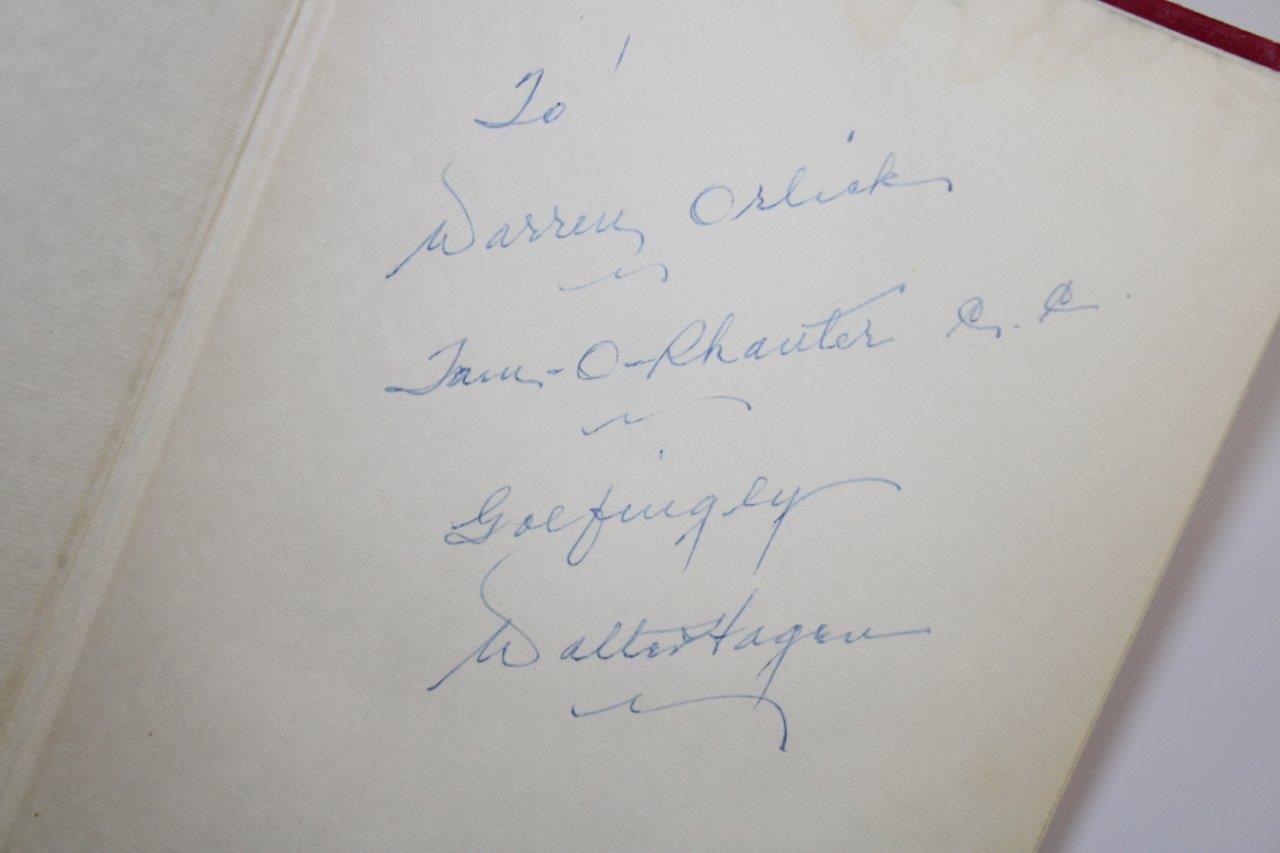 To
Warren Orlick
Tam-O-Shanter C. C.
Golfingly
Walter Hagen